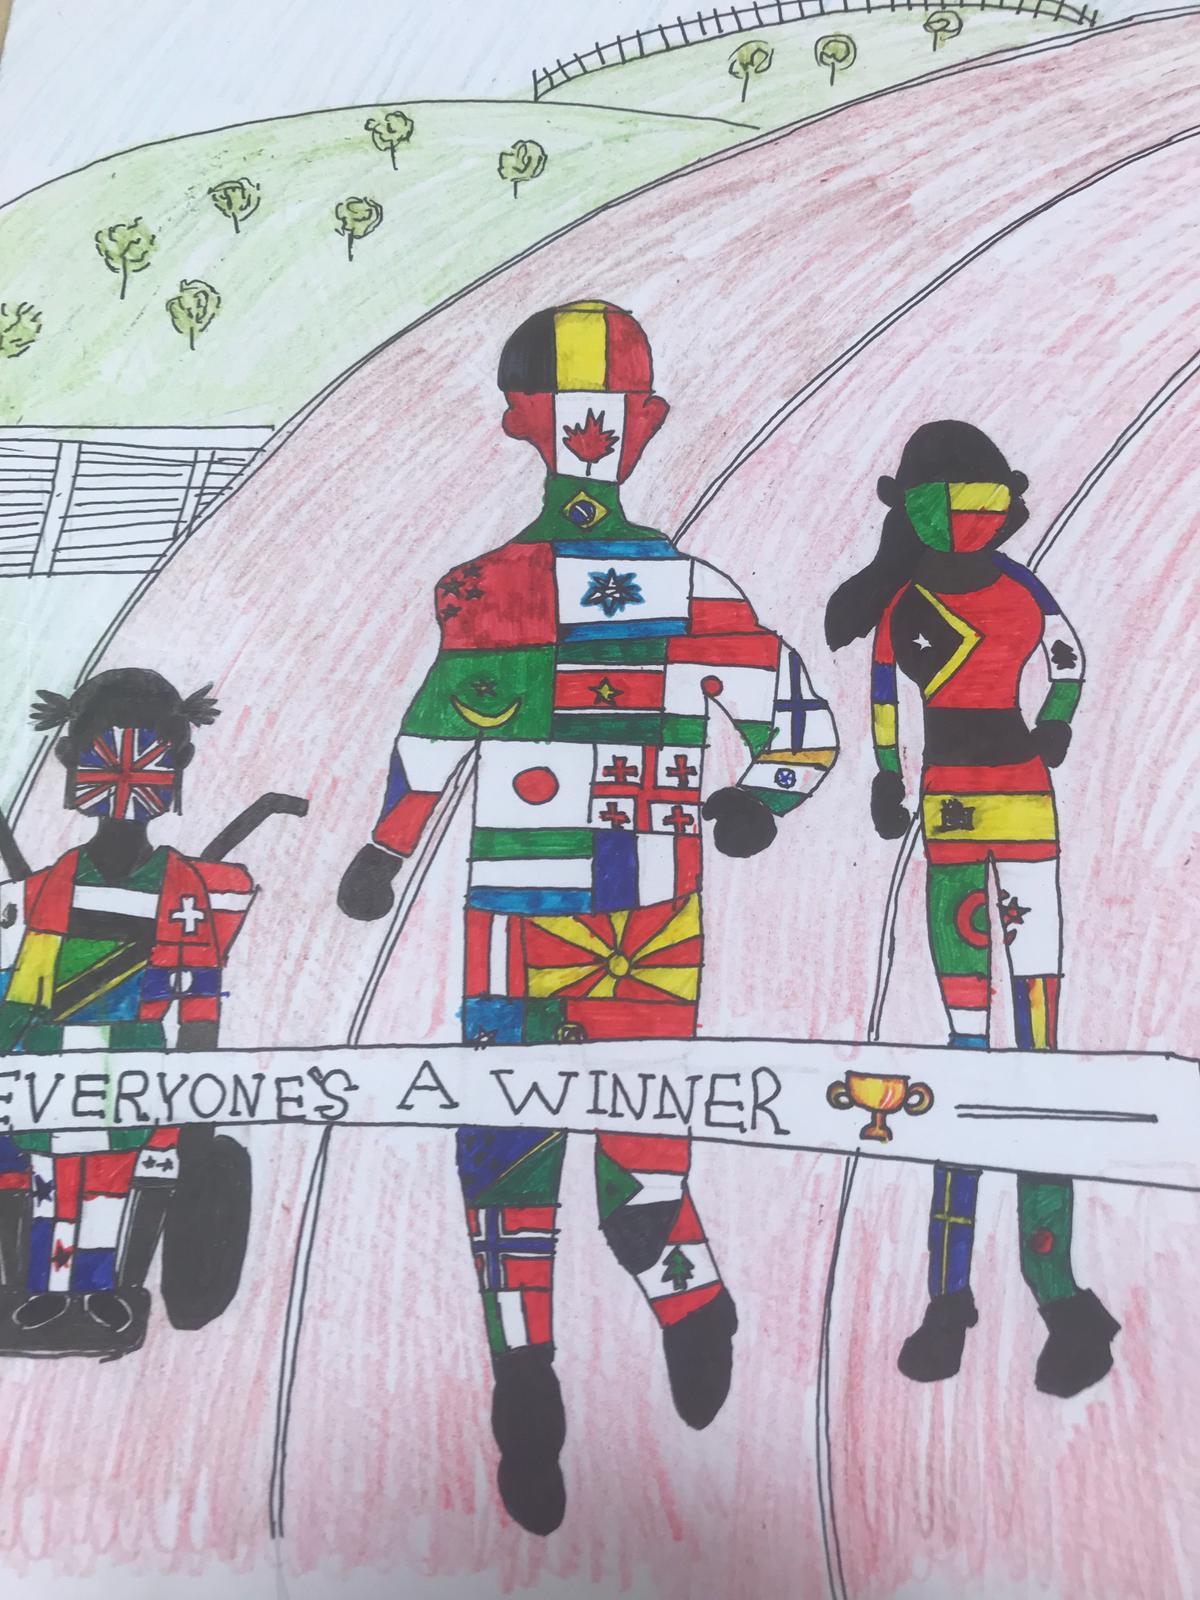 EVERYONE'S A WINNER